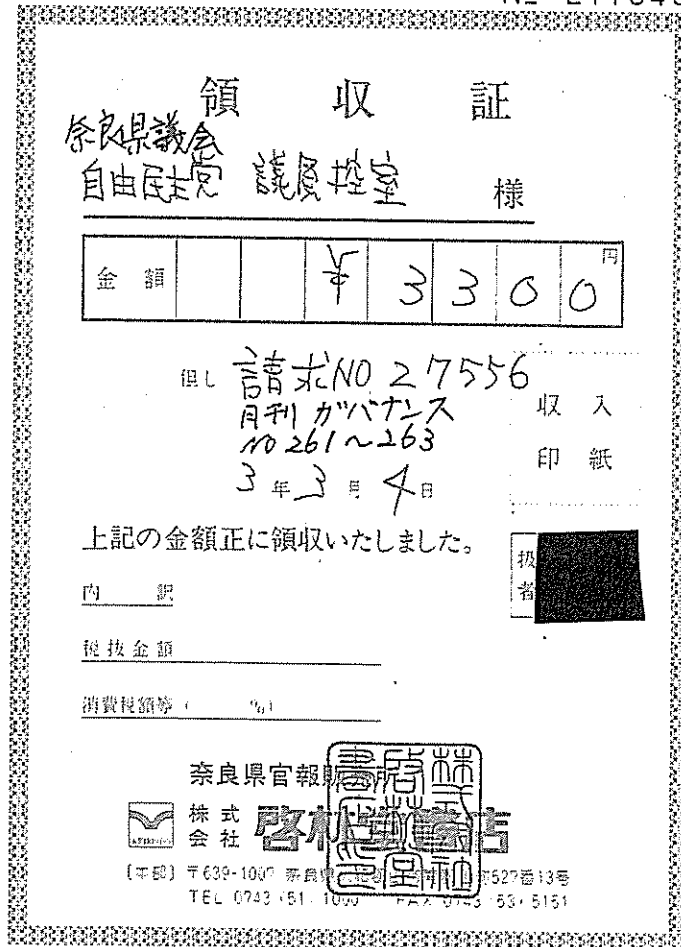 領収証
奈良県議会
自由民主党 議員控室 様
金額 ¥3300円
但し 請求NO 27556
月刊 ガバナンス
NO 261~263
3年3月4日
収入
印紙
上記の金額正に領収いたしました。
扱者
内訳
税抜金額
消費税額等( %)
奈良県官報販売所
株式会社 啓林堂書店
〔本部〕〒639-1007 奈良県 527番13号
TEL 0743・51・1000 FAX 0743・53・5151